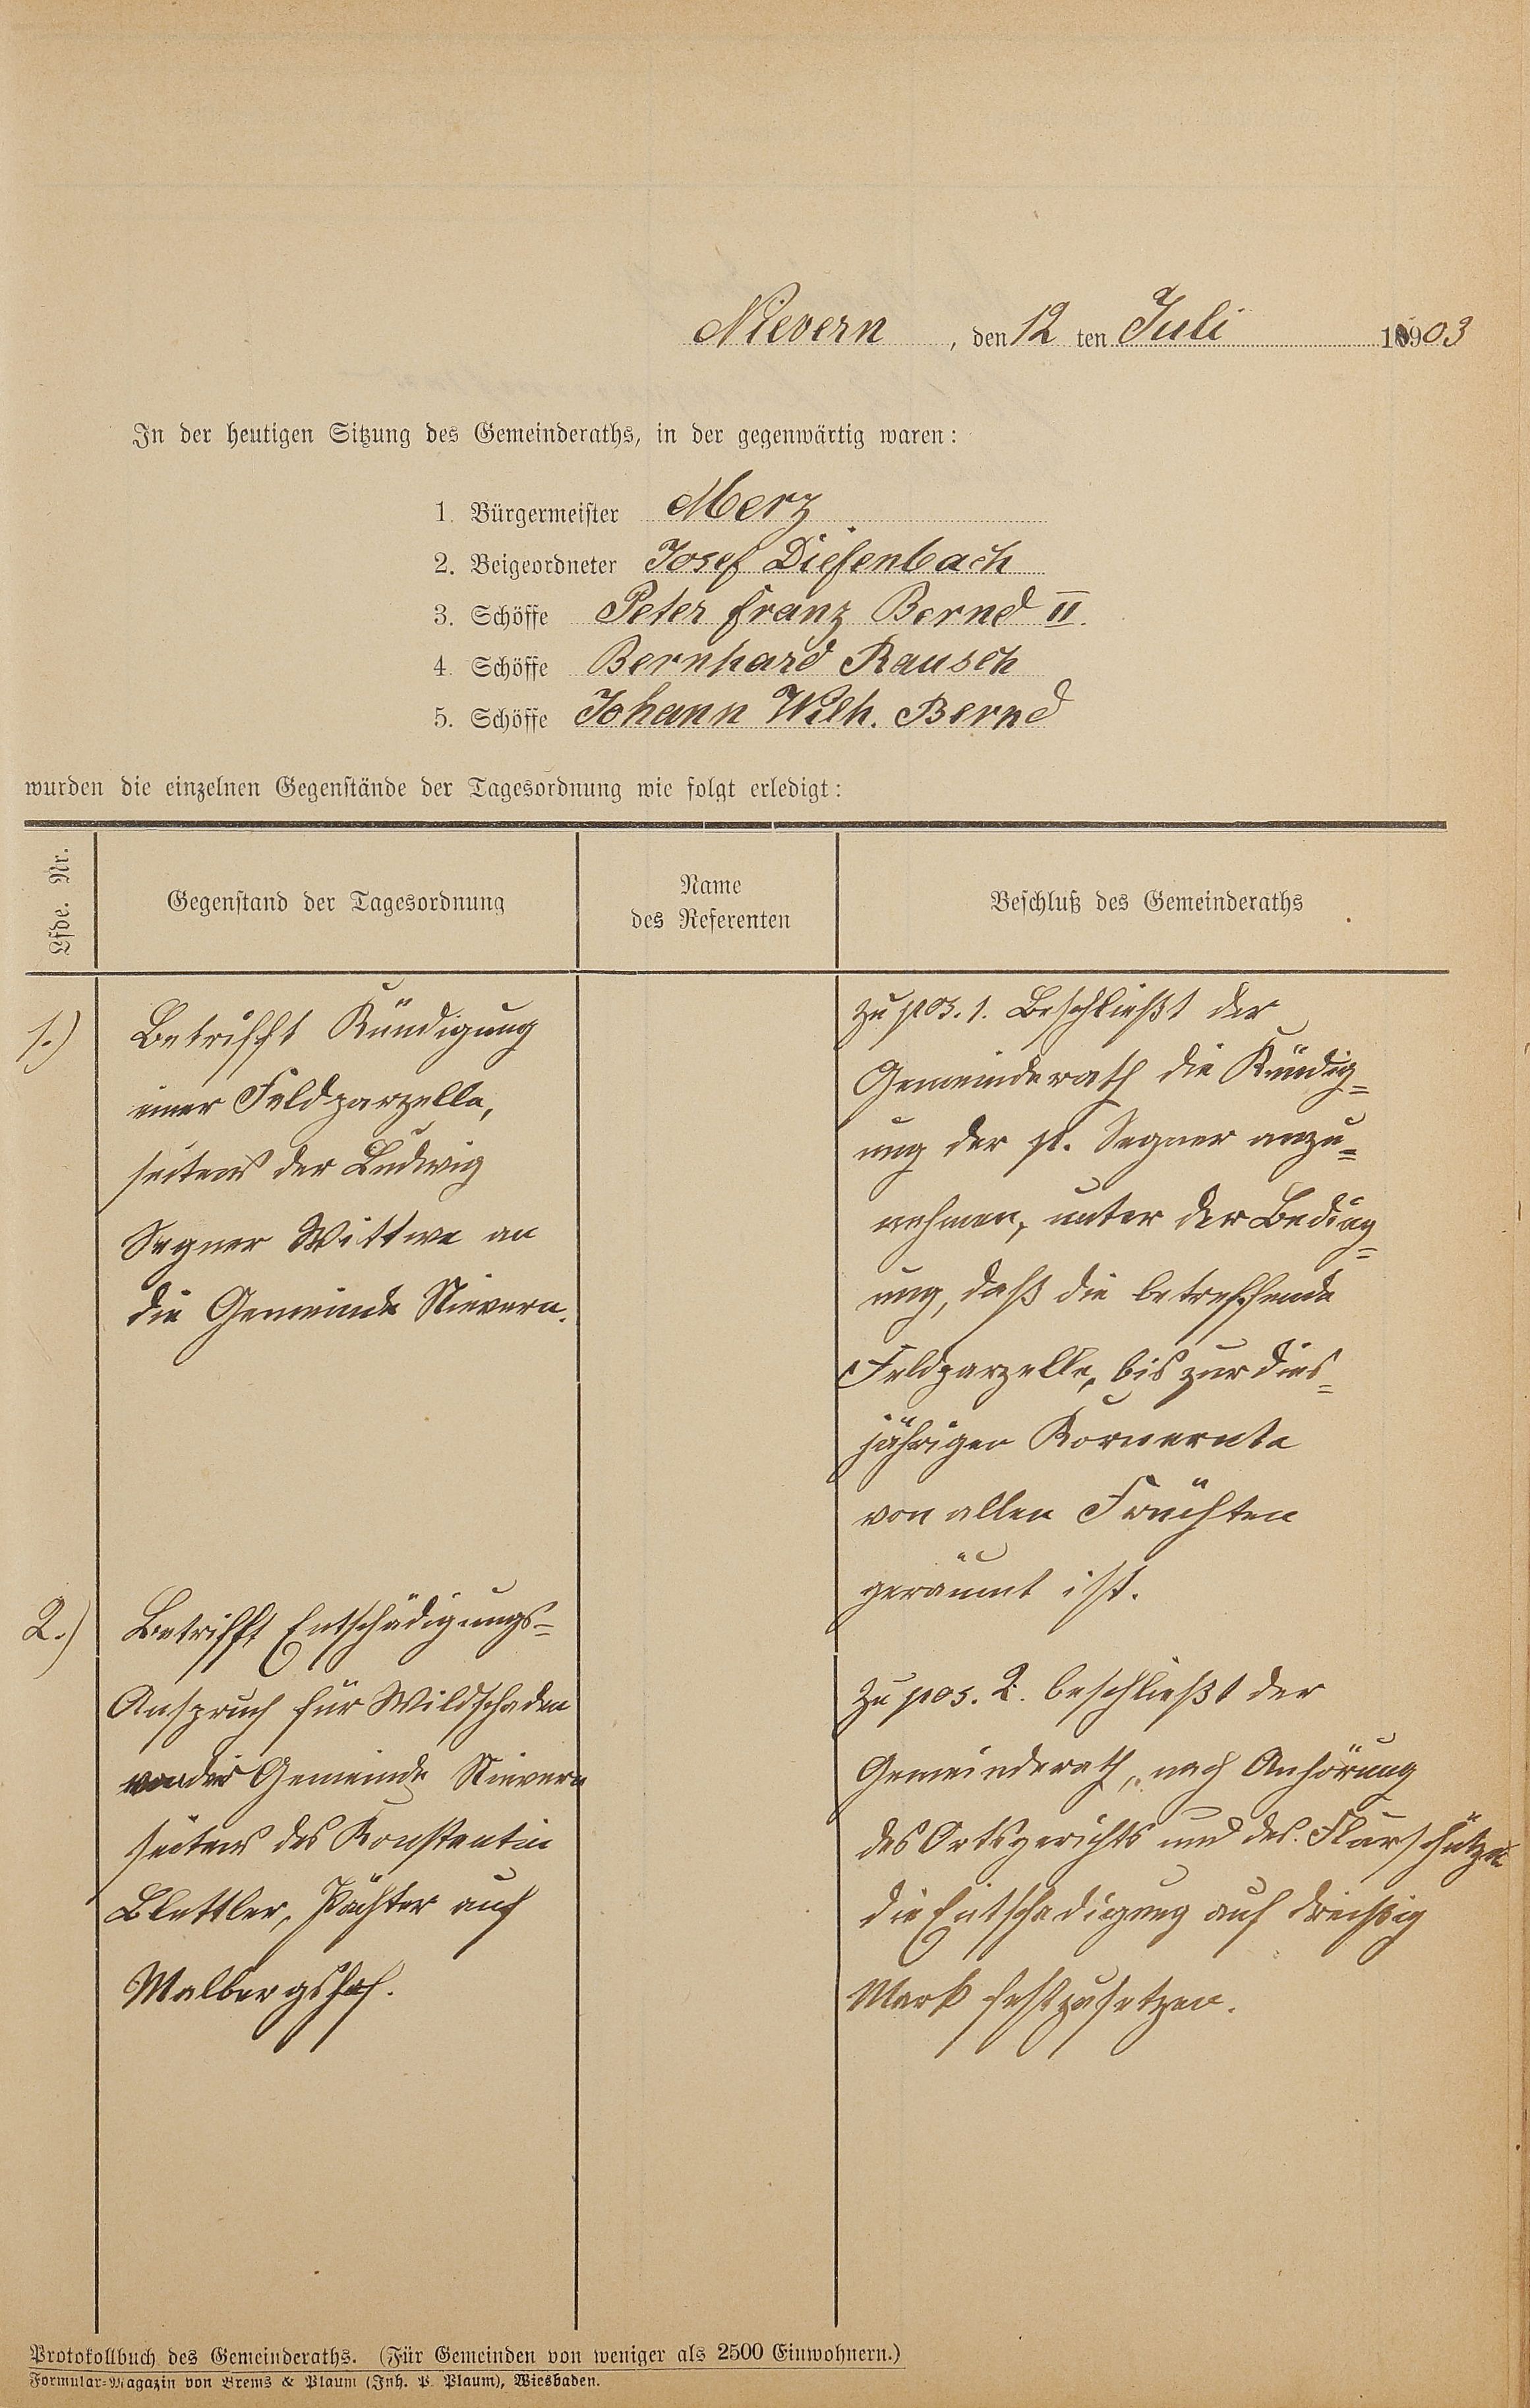 Nievern, den 12 ten Juli 1903
In der heutigen Sitzung des Gemeinderaths, in der gegenwärtig waren:
1. Bürgermeister Merz
2. Beigeordneter Josef Diefenbach
3. Schöffe Peter Franz Bernd II.
4. Schöffe Bernhard Rausch
5. Schöffe Johann Wilh. Bernd
wurden die einzelnen Gegenstände der Tagesordnung wie folgt erledigt:
Lfde. Nr.
Gegenstand der Tagesordnung
Name
des Referenten
Beschluß des Gemeinderaths
1.) Betrifft Kündigung
einer Feldparzelle,
seitens der Ludwig
Segner Wittwe an
die Gemeinde Nievern.
zu pos. 1. Beschließt der
Gemeinderath die Kündig=
ung der p. Segner anzu=
nehmen, unter der Beding=
ung, daß die betreffende
Feldparzelle, bis zur dies=
jährigen Kornernte
von allen Früchten
geräumt ist.
2.) Betrifft Entschädigungs=
Anspruch für Wildschaden
von der Gemeinde Nievern
seitens des Konstantin
Blettler, Pächter auf
Malbergshof.
Zu pos. 2. beschließt der
Gemeinderath, nach Anhörung
des Ortsgerichts und des Flurschützen
die Entschädigung auf dreißig
Mark festzusetzen.
Protokollbuch des Gemeinderaths. (Für Gemeinden von weniger als 2500 Einwohnern.)
Formular=Magazin von Brems & Plaum (Inh. P. Plaum), Wiesbaden.